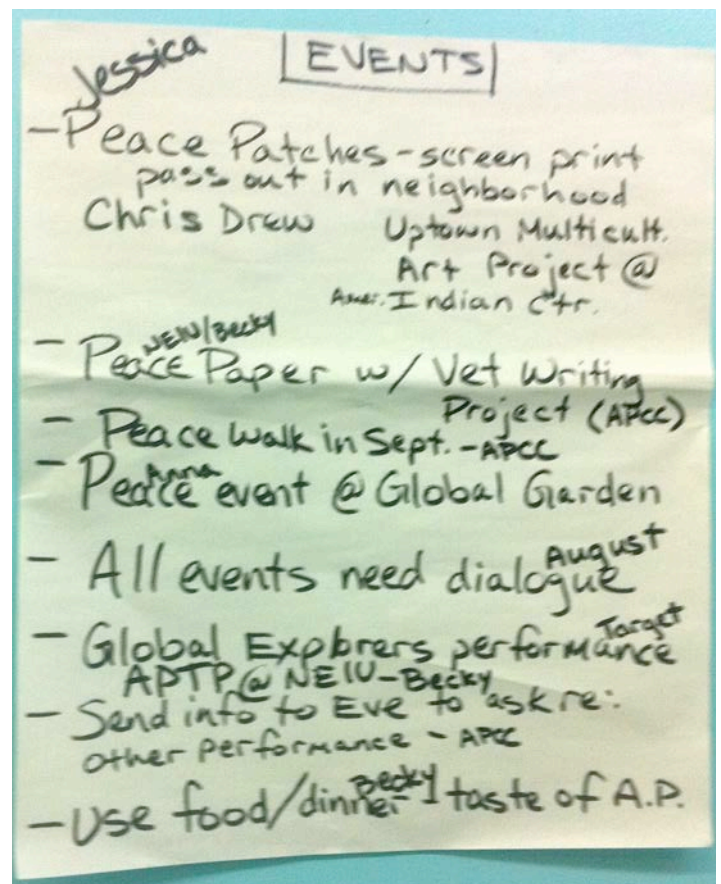 Jessica
EVENTS
- Peace Patches - screen print
pass out in neighborhood
Chris Drew Uptown Multicult.
Art Project @
Amer. Indian Ctr.
NEIU/Becky
- Peace Paper w/ Vet Writing
Project (APCC)
- Peace Walk in Sept. - APCC
Anna
- Peace event @ Global Garden
August
- All events need dialogue
Target
- Global Explorers performance
APTP @ NEIU - Becky
- Send info to Eve to ask re:
other performance - APCC
Becky
- Use food/dinner - taste of A.P.